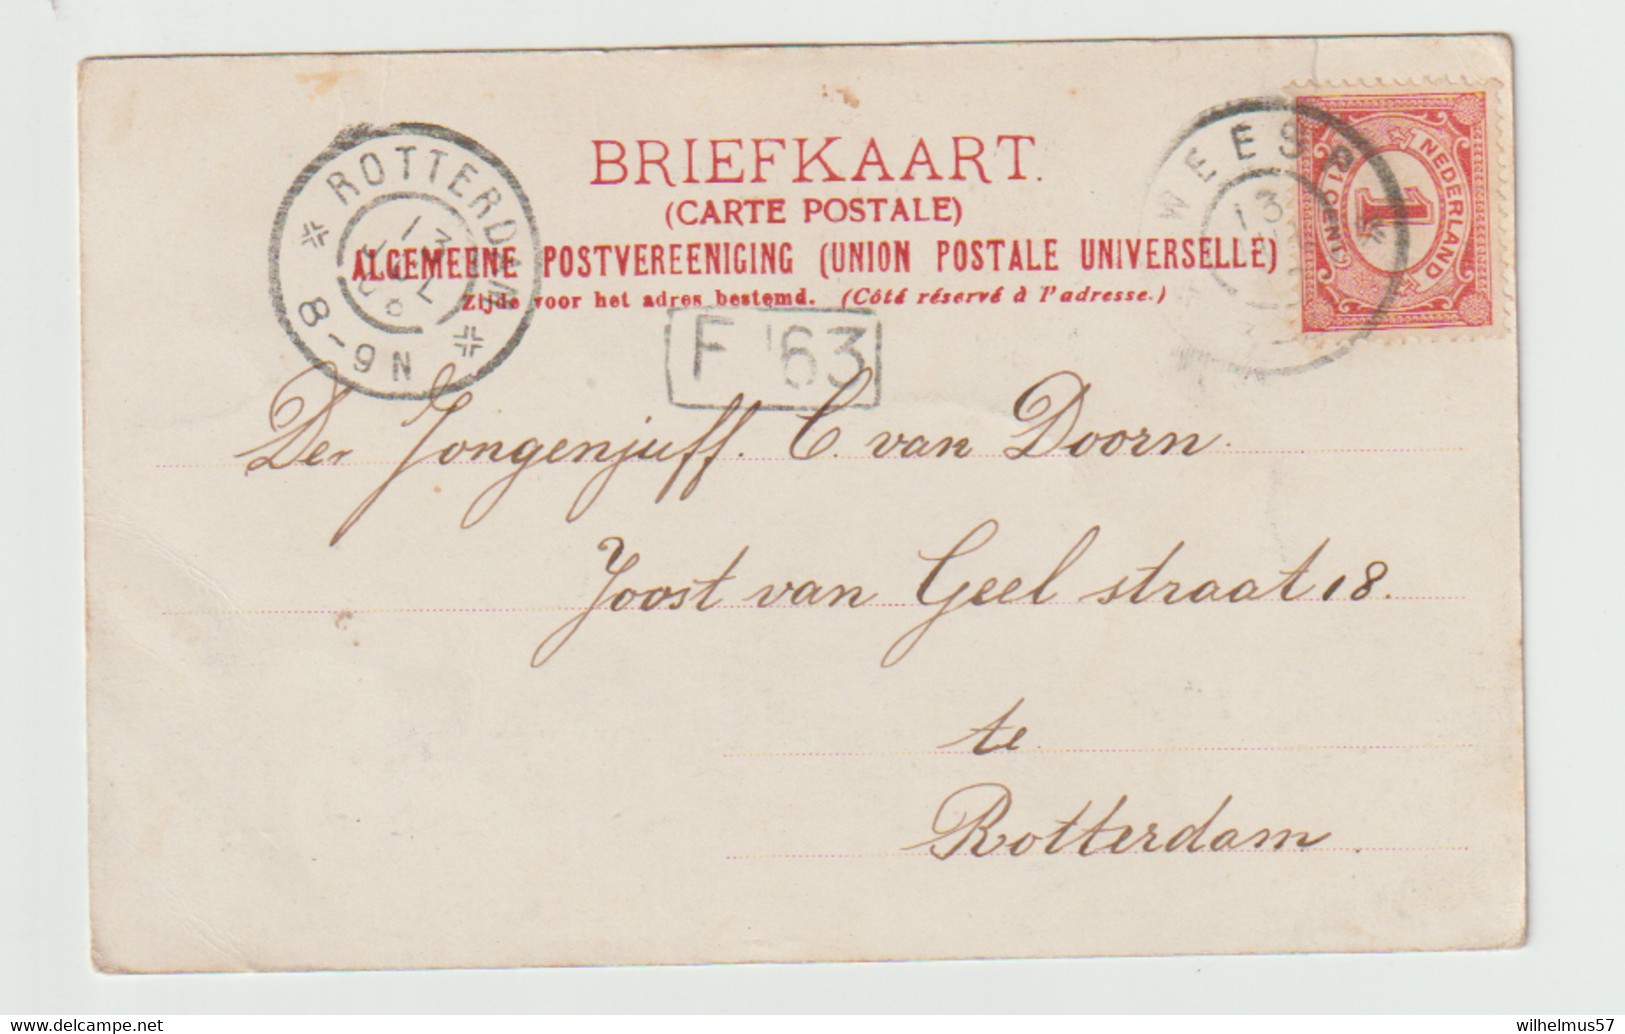 BRIEFKAART.
(CARTE POSTALE)
ALGEMEENE POSTVEREENIGING (UNION POSTALE UNIVERSELLE)
Zijde voor het adres bestemd. (Côté réservé à l'adresse.)
ROTTERDAM
13
JUL
8-9N
WEESP
13
NEDERLAND
1
1 CENT
F '63
Der Jongenjuff. C. van Doorn.
Joost van Geel straat 18.
te
Rotterdam.
delcampe.net
wilhelmus57